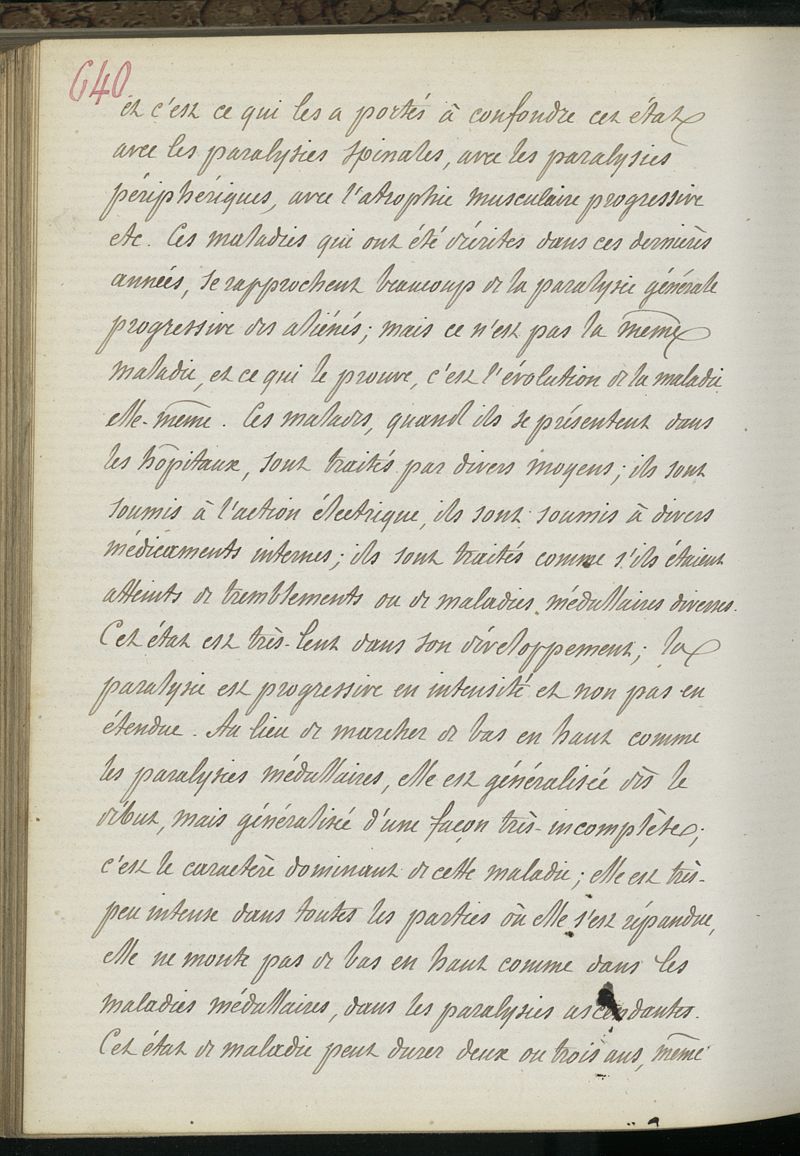 640
et c'est ce qui les a portés à confondre cet état
avec les paralysies spinales, avec les paralysies
périphériques, avec l'atrophie musculaire progressive
etc. Ces maladies qui ont été décrites dans ces dernières
années, se rapprochent beaucoup de la paralysie générale
progressive des aliénés; mais ce n'est pas la même
maladie, et ce qui le prouve, c'est l'évolution de la maladie
elle-même. Ces malades, quand ils se présentent dans
les hôpitaux, sont traités par divers moyens; ils sont
soumis à l'action électrique, ils sont soumis à divers
médicaments internes; ils sont traités comme s'ils étaient
atteints de tremblements ou de maladies médullaires diverses.
Cet état est très-lent dans son développement; la
paralysie est progressive en intensité et non pas en
étendue. Au lieu de marcher de bas en haut comme
les paralysies médullaires, elle est généralisée dès le
début, mais généralisée d'une façon très-incomplète;
c'est le caractère dominant de cette maladie; elle est très-
peu intense dans toutes les parties où elle s'est répandue,
elle ne monte pas de bas en haut comme dans les
maladies médullaires, dans les paralysies ascendantes.
Cet état de maladie peut durer deux ou trois ans, même